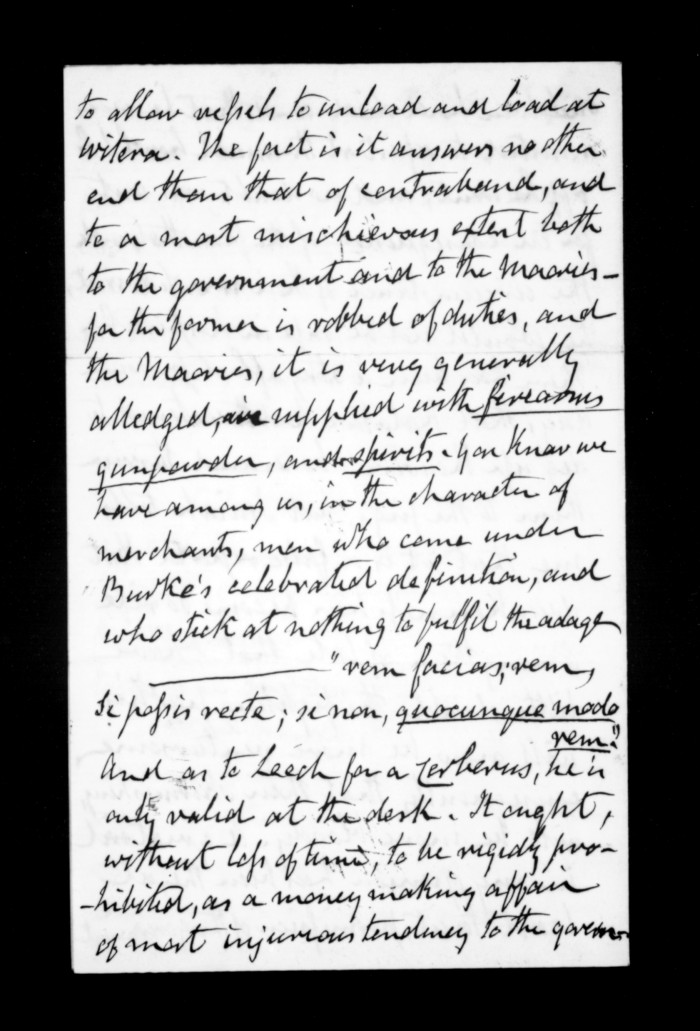 to allow vessels to unload and load at
Witera. The fact is it answers no other
end than that of contraband, and
to a most mischievous extent both
to the government and to the Maories –
for the former is robbed of duties, and
the Maories, it is very generally
alledged, are supplied with firearms
gunpowder, and spirits. You know we
have among us, in the character of
merchants, men who come under
Burke's celebrated definition, and
who stick at nothing to fulfil the adage
"rem facias; rem,
Si possis recte; si non, quocunque modo
rem."
And as to Leech for a Cerberus, he is
only valid at the desk. It ought,
without loss of time, to be rigidly pro-
-hibited, as a money making affair
of most injurious tendency to the govern-